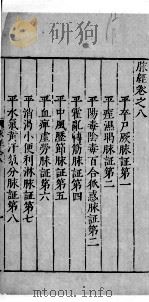 脉經卷之八
平卒尸厥脉証第一
平痙濕暍脉証第二
平陽毒陰毒百合狐惑脉証第三
平霍亂轉筋脉証第四
平中風歷節脉証第五
平血痺虛勞脉証第六
平消渴小便利淋脉証第七
平水氣黄汗氣分脉証第八